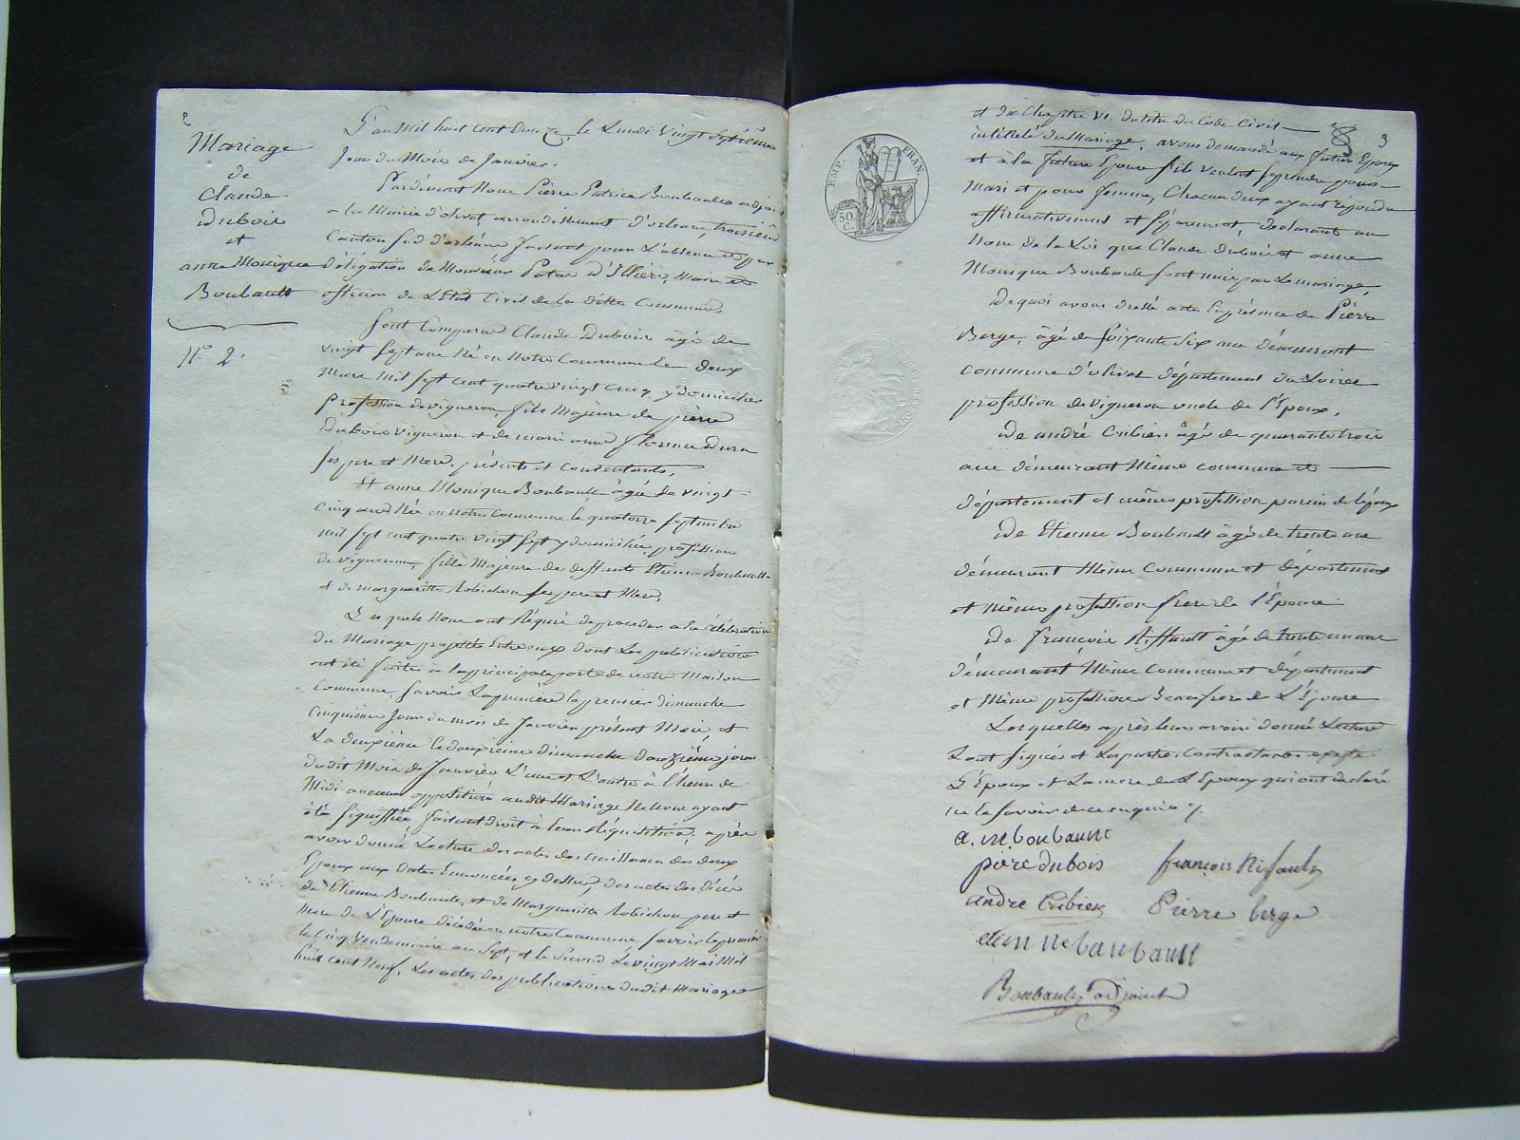 2
Mariage
de
Claude
Dubois
et
anne Monique
Boubault
N.° 2.
L'an Mil huit cent Douze, le Lundi vingt Septième
Jour du Mois de Janvier.
Pardevant Nous Pierre Patrice Boubault adjoint
a la Mairie d'olivet arrondissement d'orleans, troisième
Canton Sud d'orléans faisant pour L'absence et par
délégation de Monsieur Petau D'Illiers, Maire et
officier de L'Etat Civil de la ditte Commune,
Sont Comparus Claude Dubois âgé de
vingt Sept ans Né en Notre Commune Le deux
Mars Mil Sept cent quatre vingt cinq, y domicilié
profession de vigneron, fils Majeur de pierre
Dubois vigneron et de marie anne
ses pere et Mere, présents et Consentants,
Et anne Monique Boubault âgée de vingt
Cinq ans Née en Notre Commune le quatorze Septembre
Mil Sept cent quatre vingt Sept y domiciliée, profession
de vigneronne, fille Majeure de deffunts Etienne Boubault
et de marguerite Robichon ses pere et Mere,
Lesquels Nous ont Requis de proceder a la Célébration
du Mariage projetté Entre eux dont Les publications
ont été faites à la principale porte de notre Maison
Commune, Savoir La première le premier dimanche
Cinquième Jour du mois de Janvier présent Mois, et
La deuxième le deuxieme Dimanche douzième jour
dudit Mois de Janvier L'une et L'autre à l'heure de
Midi aucune opposition audit Mariage Ne Nous ayant
été Signiffiée faisant droit à leur Réquisition, après
avoir donné Lecture des actes de Naissance des deux
Epoux aux dates Enoncées cy dessus, des actes de Décès
de Etienne Boubault, et de Marguerite Robichon pere et
Mere de L'Epouse décédés en notre Commune Savoir le premier
le Cinq Vendemiaire an Sept, et la Seconde Le vingt Mai Mil
huit cent Neuf, Les actes des publications dudit Mariage
3
EMP. FRAN.
50
C.
et du Chapitre VI. du titre du Code Civil
intitulé du Mariage, avons demandé aux futur Epoux
et à la future Epouse s'ils veulent se prendre pour
Mari et pour femme, Chacun d'eux ayant répondu
affirmativement et séparément, déclarons au
Nom de la Loi que Claude Dubois et anne
Monique Boubault sont unis par Le mariage,
De quoi avons dressé acte En présence de Pierre
Berge, âgé de soixante six ans demeurant
Commune d'olivet département du Loiret
profession de vigneron oncle de l'Epoux,
De andré Cribier âgé de quarante trois
ans demeurant Même commune et
département et même profession parein de l'époux
De Etienne Boubault âgé de trente ans
demeurant Même Commune et département
et Même profession frere de l'Epouse
De François Riffault âgé de trente un ans
demeurant Même Commune et département
et Même profession Beaufrere de L'Epouse
Lesquelles après leur avoir donné Lecture
L'Epoux et La mere de L'Epoux qui ont déclaré
ne le savoir de ce enquis
a. m. boubault
pierre dubois
françois Rifault
andre Cribier
Pierre berge
etienne baubault
Boubault adjoint